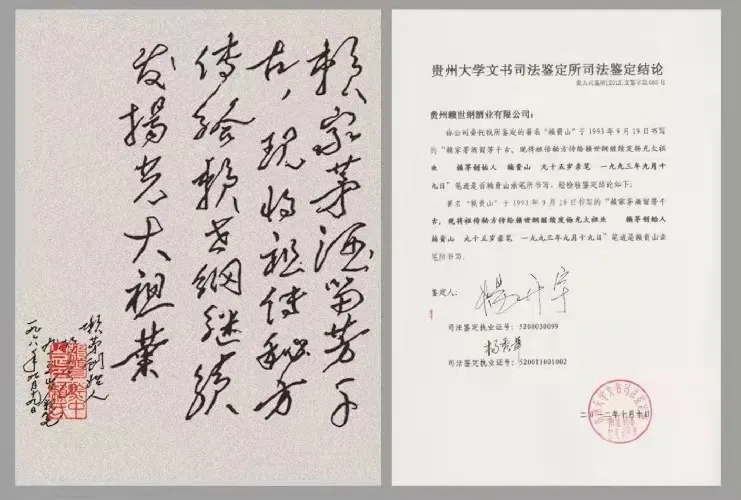 賴家茅酒留芳千
古,現將祖传秘方
传给賴世綱继续
发揚光大祖業
賴茅創始人
贵州大学文书司法鉴定所司法鉴定结论
贵州赖世纲酒业有限公司:
你公司委托我所鉴定的署名“赖贵山”于 1993 年 9 月 19 日书写
的“赖家茅酒留芳千古,现将祖传秘方传给赖世纲继续发扬光大祖
业 赖茅创始人 赖贵山 九十五岁亲笔 一九九三年九月十
九日”笔迹是否赖贵山亲笔所书写,经检验鉴定结论如下:
署名“赖贵山”于 1993 年 9 月 19 日书写的“赖家茅酒留芳千
古,现将祖传秘方传给赖世纲继续发扬光大祖业 赖茅创始人
赖贵山 九十五岁亲笔 一九九三年九月十九日”笔迹是赖贵山亲
笔所书写。
鉴定人:
司法鉴定执业证号: 5200030099
司法鉴定执业证号: 520011001002
二〇一二年十月十日